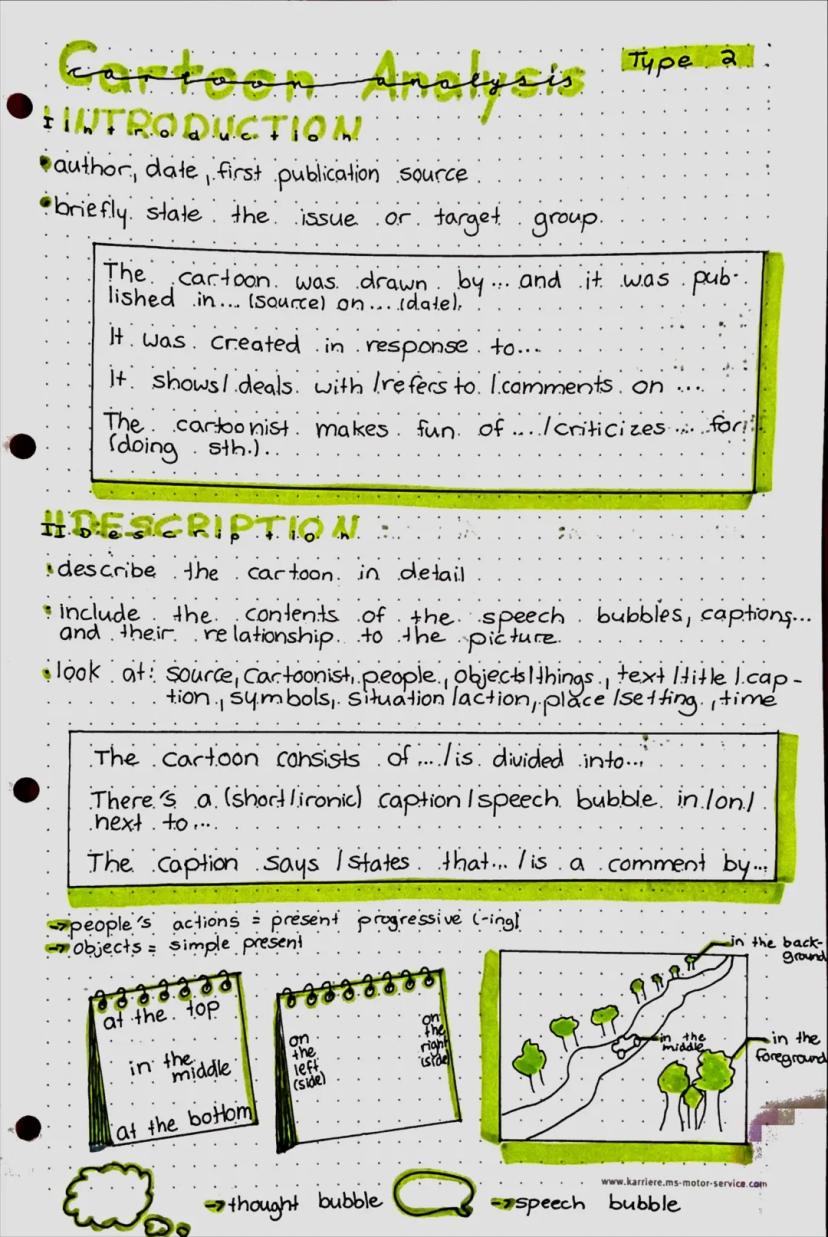 Cartoon Analysis
Type 2
I INTRODUCTION
• author, date, first publication source
• briefly state the issue or target group
The cartoon was drawn by... and it was pub-
lished in... (source) on... (date).
It was created in response to...
It shows / deals with / refers to / comments on ...
The cartoonist makes fun of .... / criticizes ... for
(doing sth.)..
II DESCRIPTION
• describe the cartoon in detail
• include the contents of the speech bubbles, captions...
and their relationship to the picture
• look at: source, cartoonist, people, objects / things, text / title / cap-
tion, symbols, situation / action, place / setting, time
The cartoon consists of ... / is divided into...
There's a (short / ironic) caption / speech bubble in / on /
next to...
The caption says / states that... / is a comment by...
→ people's actions = present progressive (-ing)
→ objects = simple present
at the top
in the
middle
at the bottom
on
the
left
(side)
on
the
right
(side)
in the back-
ground
in the
middle
in the
foreground
www.karriere.ms-motor-service.com
→ thought bubble
→ speech bubble